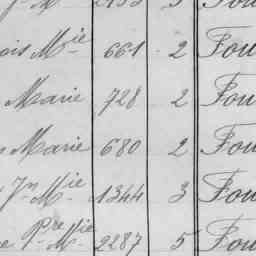 ois M^ie 661 2 Fou
Marie 728 2 Fou
Marie 680 2 Fou
J^n M^ie 1344 3 Fou
P^re M^ie 2287 5 Fou